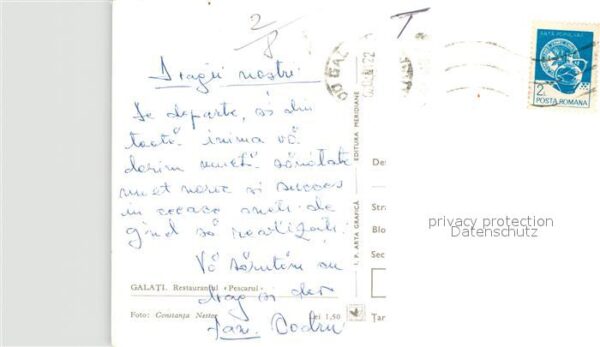 2/8
T
Dragii noștri
De departe, și din
toată inima vă
dorim multă sănătate
mult noroc și succes
în ceeace
gînd să realizați.
Vă sărutăm cu
drag și dor
Fam. Codru
GALAȚI. Restaurantul «Pescarul»
Foto: Constanța Nestor
lei 1,50
I. P. ARTA GRAFICĂ
EDITURA MERIDIANE
GAL
ARTA POPULARĂ
2L
POSTA ROMANA
De
Str
Blo
Sec
Țar
privacy protection
Datenschutz